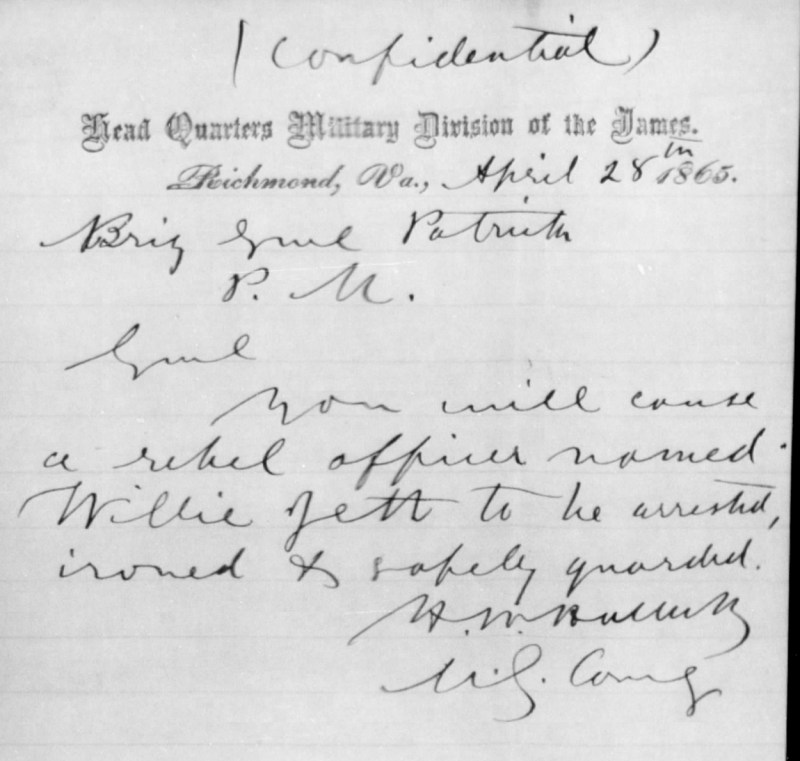 (Confidential)
Head Quarters Military Division of the James.
Richmond, Va., April 28th 1865.
Brig Genl Patrick
P. M.
Genl
You will cause
a rebel officer named
Willie Jett to be arrested,
ironed & safely guarded.
H. W. Halleck
M. G. Comg